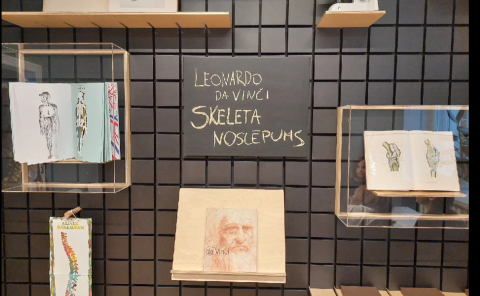 LEONARDO
DA VINCI
SKELETA
NOSLĒPUMS
da Vinci